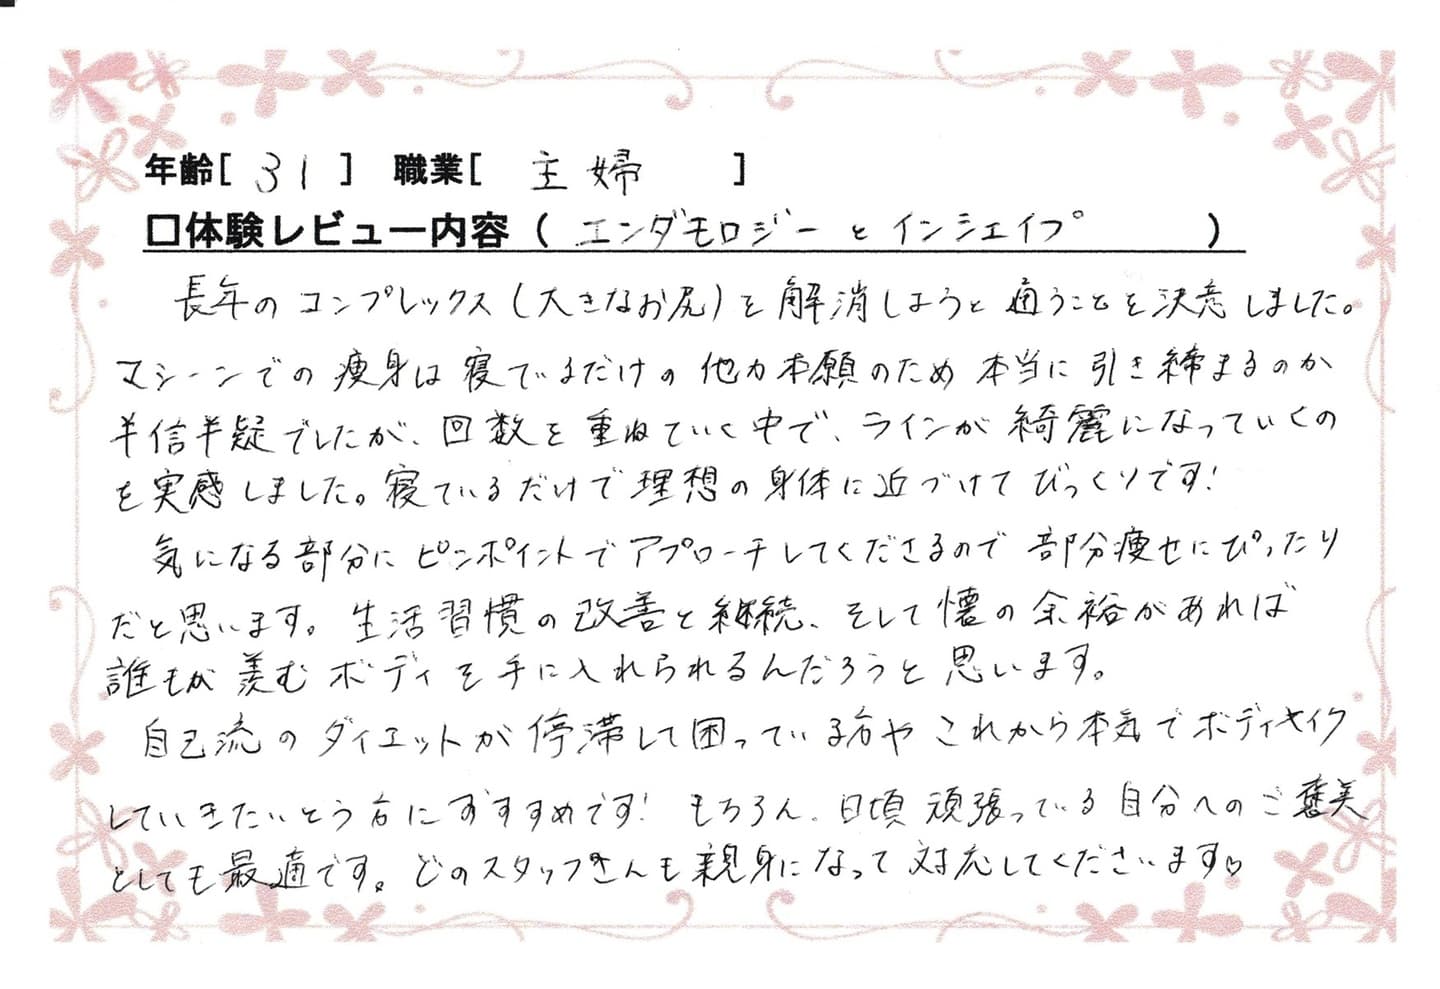 年齢[ 31 ] 職業[ 主婦 ]
□体験レビュー内容 ( エンダモロジーとインシェイプ )
長年のコンプレックス(大きなお尻)を解消しようと通うことを決意しました。
マシーンでの痩身は寝ているだけの他力本願のため本当に引き締まるのか
半信半疑でしたが、回数を重ねていく中で、ラインが綺麗になっていくの
を実感しました。寝ているだけで理想の身体に近づけてびっくりです!
気になる部分にピンポイントでアプローチしてくださるので部分痩せにぴったり
だと思います。生活習慣の改善と継続、そして懐の余裕があれば
誰もが羨むボディを手に入れられるんだろうと思います。
自己流のダイエットが停滞して困っている方やこれから本気でボディメイク
していきたいとう方にすすすめです! もちろん、日頃頑張っている自分へのご褒美
としても最適です。どのスタッフさんも親身になって対応してくださいます♡